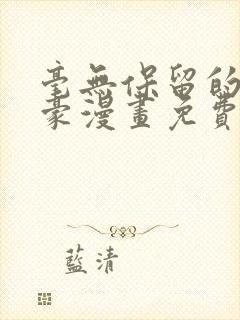 毫無保留的
豪漫畫免費
藍清